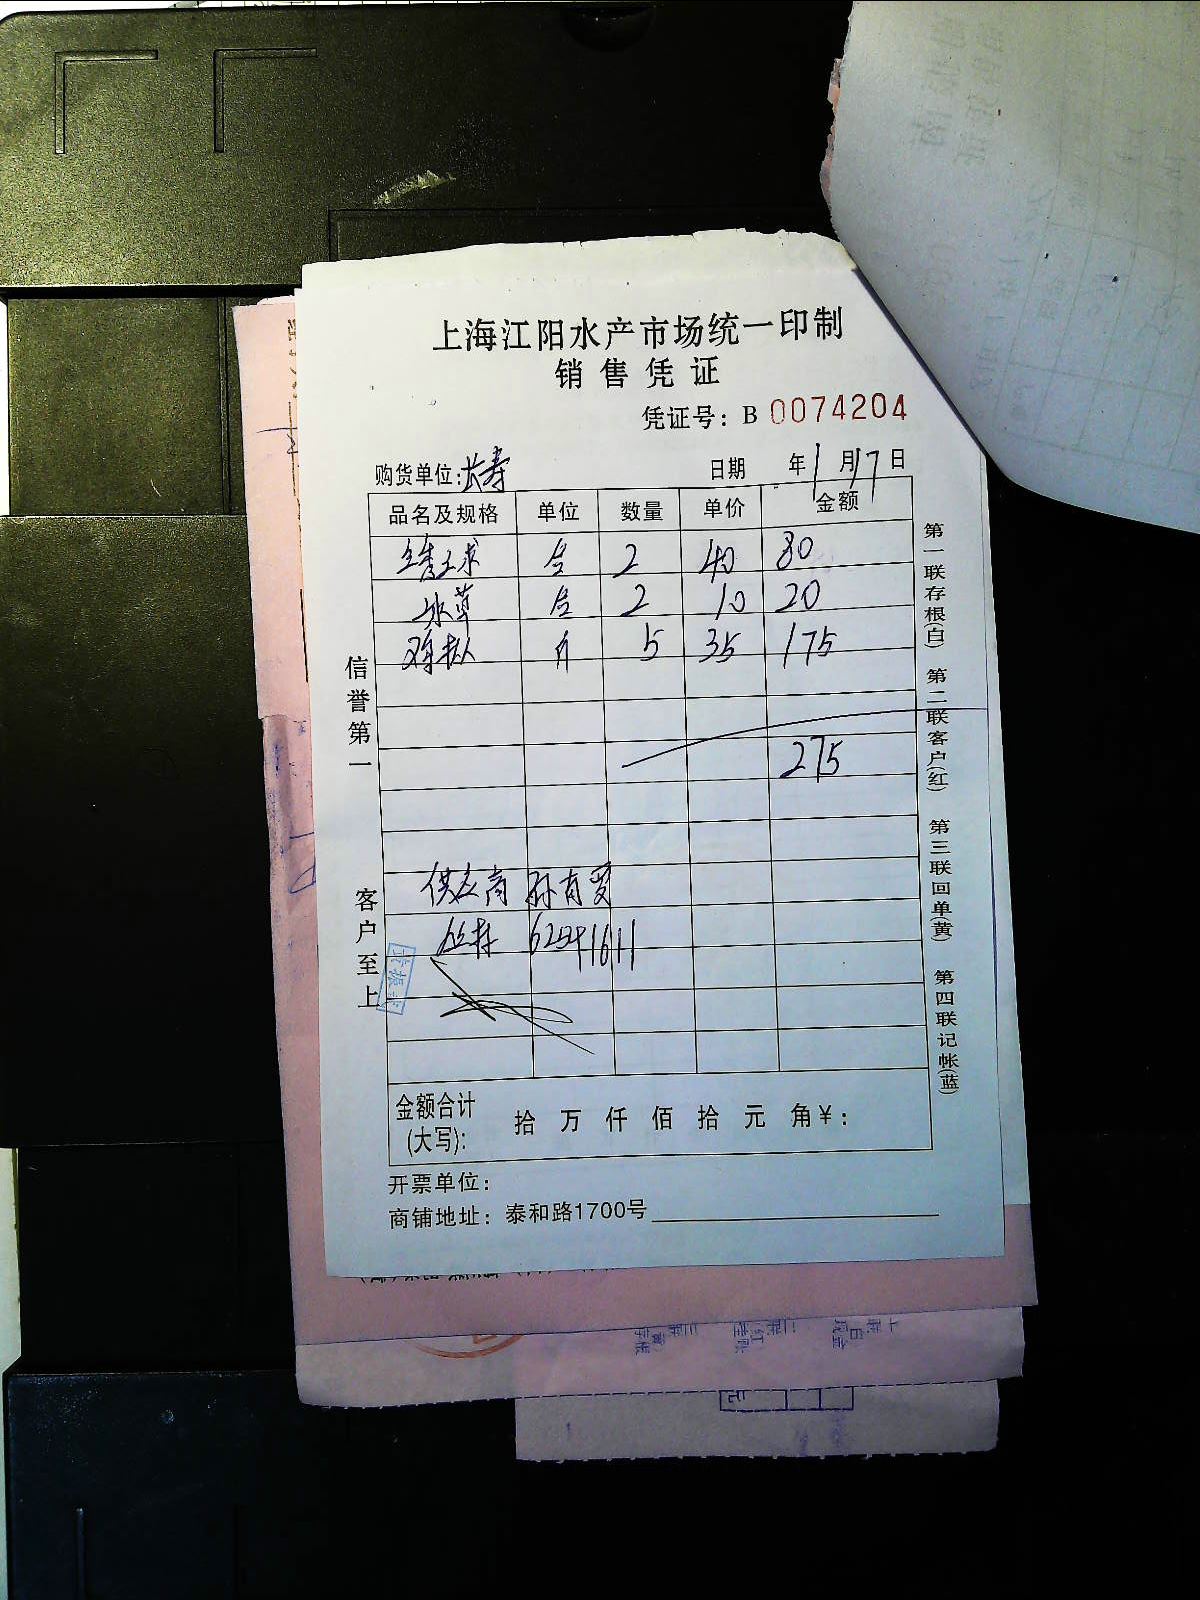 上海江阳水产市场统一印制
销售凭证
凭证号: B 0074204
购货单位: 长寿 日期 年 1 月 17 日
品名及规格 单位 数量 单价 金额
合 2 40 80
冰草 合 2 10 20
斤 5 35 175
275
供应商 孙有
金额合计(大写): 拾 万 仟 佰 拾 元 角 ¥:
开票单位:
商铺地址: 泰和路1700号
信誉第一
客户至上
第一联存根(白) 第二联客户(红) 第三联回单(黄) 第四联记帐(蓝)